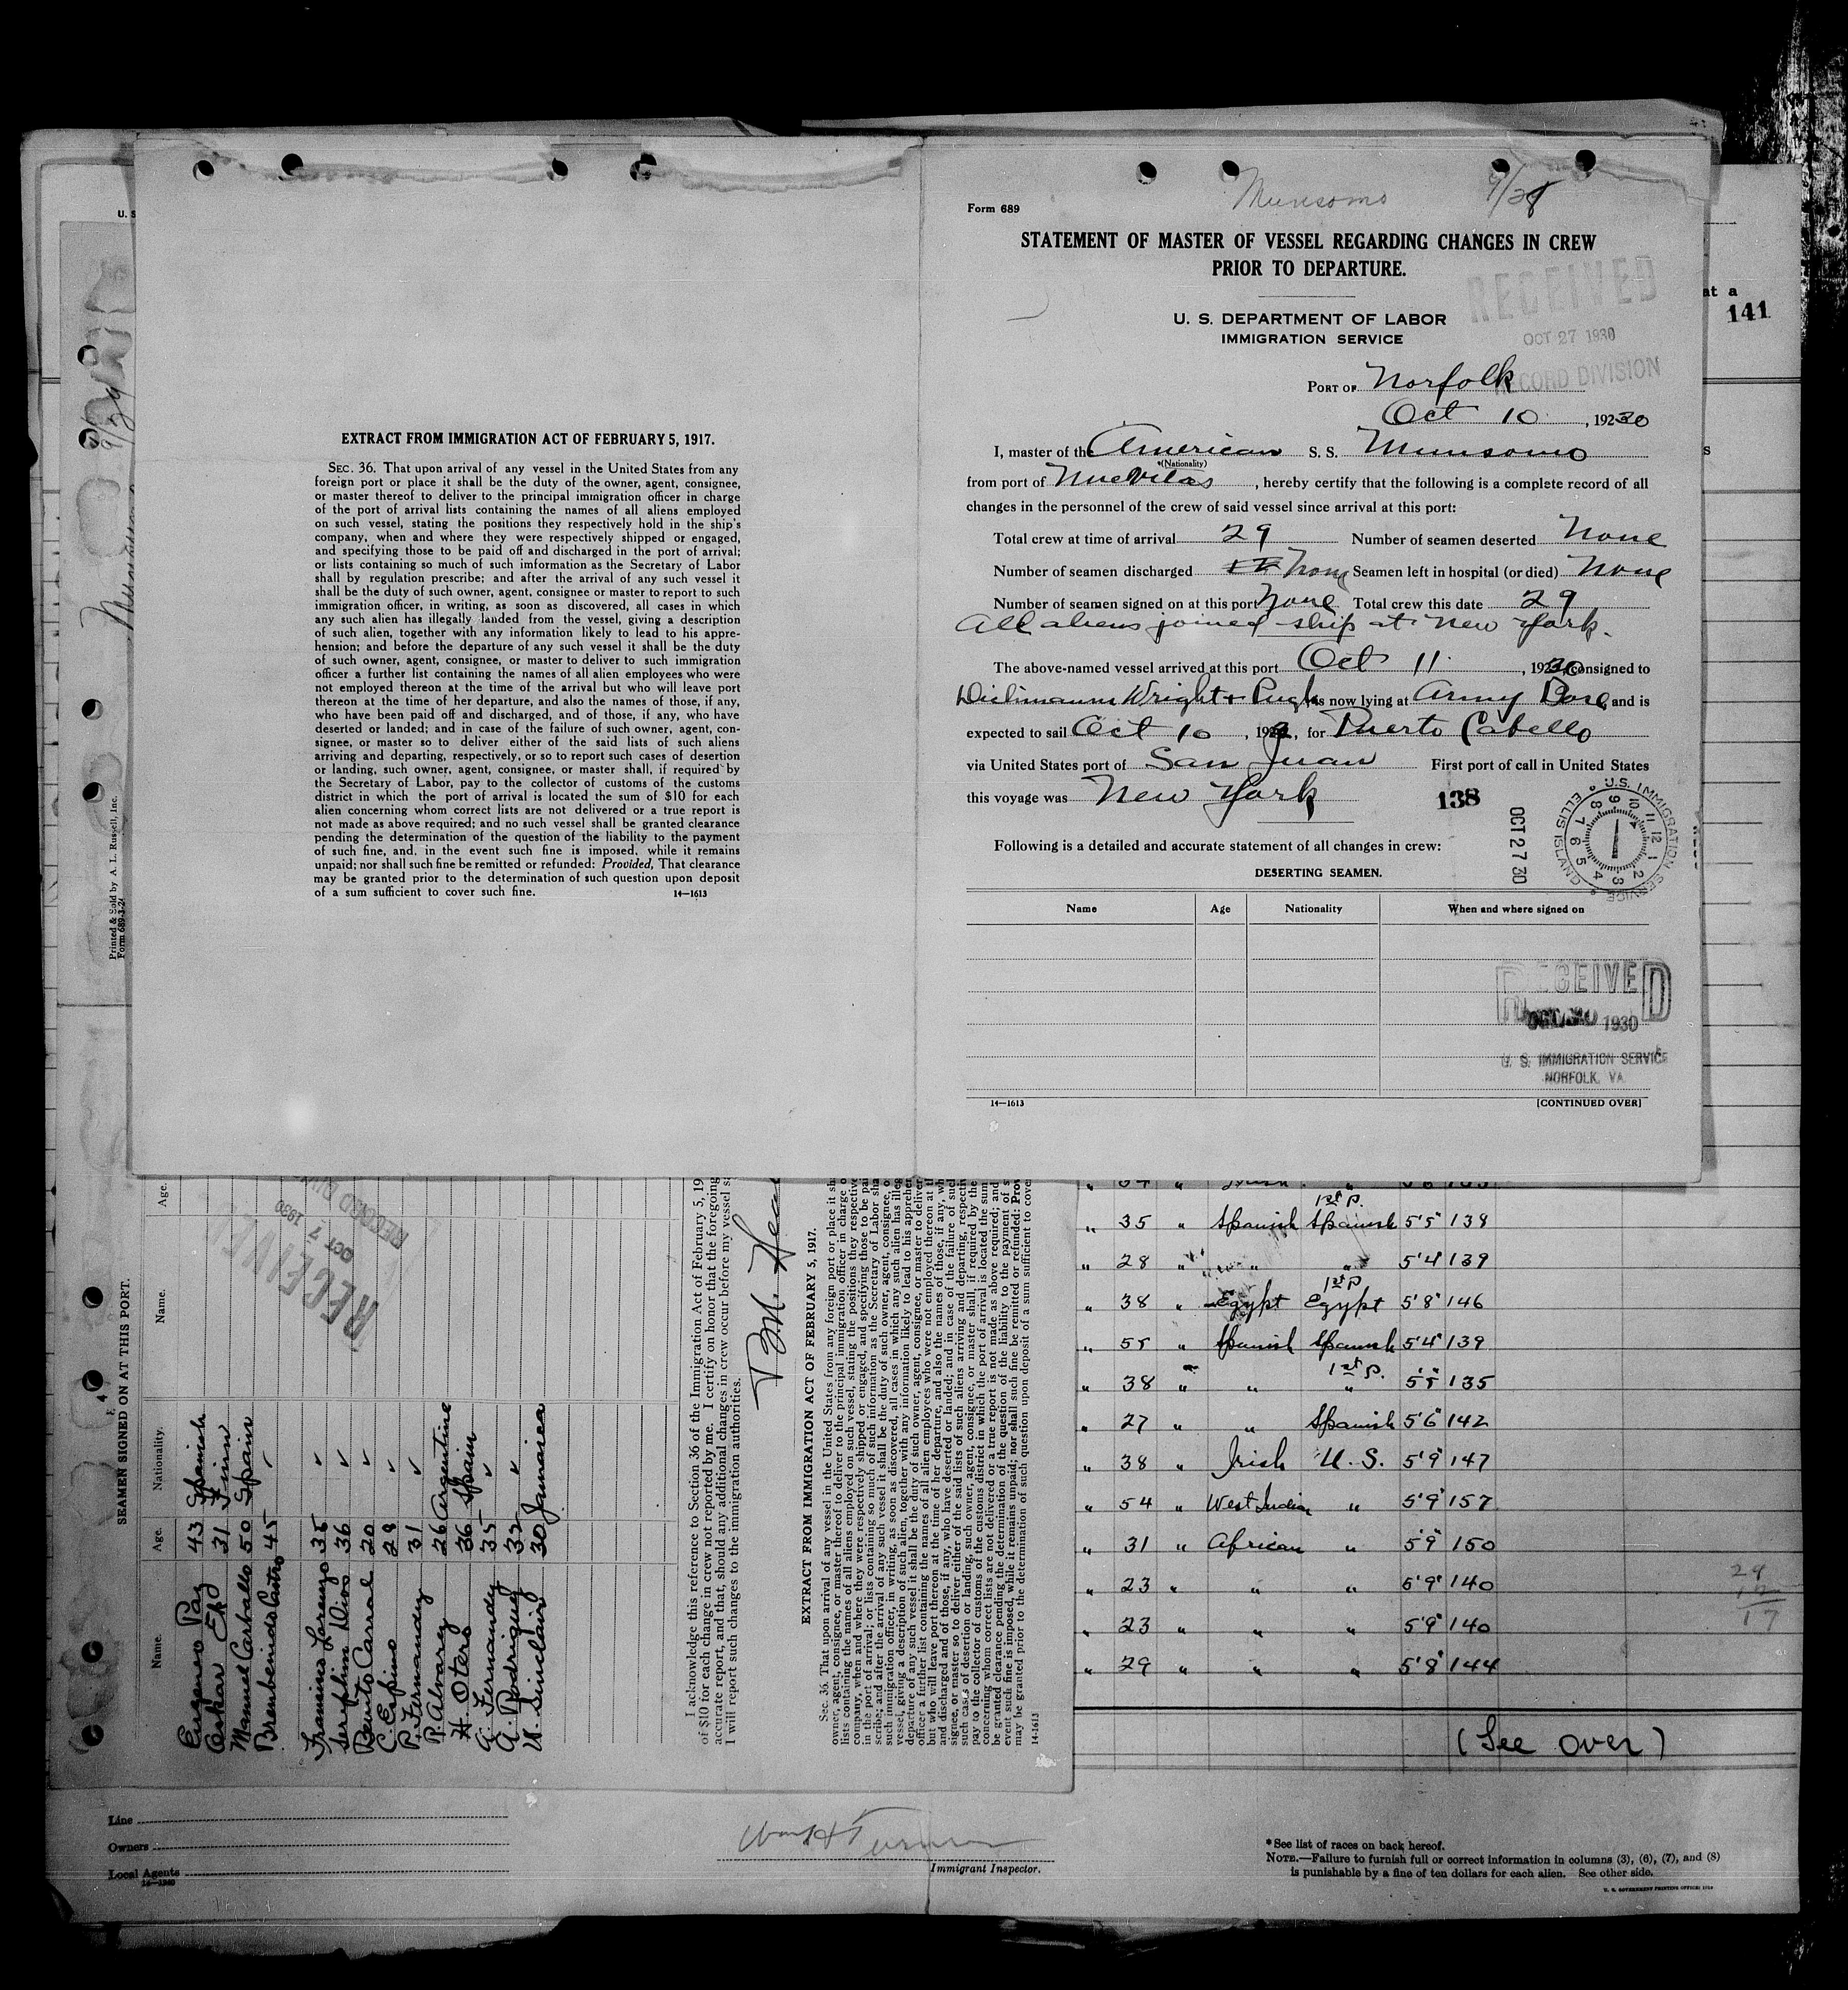 EXTRACT FROM IMMIGRATION ACT OF FEBRUARY 5, 1917.
SEC. 36. That upon arrival of any vessel in the United States from any
foreign port or place it shall be the duty of the owner, agent, consignee,
or master thereof to deliver to the principal immigration officer in charge
of the port of arrival lists containing the names of all aliens employed
on such vessel, stating the positions they respectively hold in the ship's
company, when and where they were respectively shipped or engaged,
and specifying those to be paid off and discharged in the port of arrival;
or lists containing so much of such imformation as the Secretary of Labor
shall by regulation prescribe; and after the arrival of any such vessel it
shall be the duty of such owner, agent, consignee or master to report to such
immigration officer, in writing, as soon as discovered, all cases in which
any such alien has illegally landed from the vessel, giving a description
of such alien, together with any information likely to lead to his appre-
hension; and before the departure of any such vessel it shall be the duty
of such owner, agent, consignee, or master to deliver to such immigration
officer a further list containing the names of all alien employees who were
not employed thereon at the time of the arrival but who will leave port
thereon at the time of her departure, and also the names of those, if any,
who have been paid off and discharged, and of those, if any, who have
deserted or landed; and in case of the failure of such owner, agent, con-
signee, or master so to deliver either of the said lists of such aliens
arriving and departing, respectively, or so to report such cases of desertion
or landing, such owner, agent, consignee, or master shall, if required by
the Secretary of Labor, pay to the collector of customs of the customs
district in which the port of arrival is located the sum of $10 for each
alien concerning whom correct lists are not delivered or a true report is
not made as above required; and no such vessel shall be granted clearance
pending the determination of the question of the liability to the payment
of such fine, and, in the event such fine is imposed, while it remains
unpaid; nor shall such fine be remitted or refunded: Provided, That clearance
may be granted prior to the determination of such question upon deposit
of a sum sufficient to cover such fine. 14—1613
Munsomo 9/28
Form 689
STATEMENT OF MASTER OF VESSEL REGARDING CHANGES IN CREW
PRIOR TO DEPARTURE.
RECEIVED
OCT 27 1930
RECORD DIVISION
U. S. DEPARTMENT OF LABOR
IMMIGRATION SERVICE
PORT OF Norfolk
Oct 10, 19230
I, master of the American S. S. Munsomo
*(Nationality)
from port of Nuevitas, hereby certify that the following is a complete record of all
changes in the personnel of the crew of said vessel since arrival at this port:
Total crew at time of arrival 29 Number of seamen deserted None
Number of seamen discharged None Seamen left in hospital (or died) None
Number of seamen signed on at this port None Total crew this date 29
All aliens joined ship at New York.
The above-named vessel arrived at this port Oct 11, 1930 consigned to
Dichmann Wright + Pugh is now lying at Army Base, and is
expected to sail Oct 10, 192, for Puerto Cabello
via United States port of San Juan First port of call in United States
this voyage was New York 138
OCT 27 30
U.S. IMMIGRATION SERVICE
ELLIS ISLAND
Following is a detailed and accurate statement of all changes in crew:
DESERTING SEAMEN.
Name Age Nationality When and where signed on
RECEIVED
1930
U. S. IMMIGRATION SERVICE
NORFOLK, VA
14—1613 [CONTINUED OVER]
at a
141
Printed & Sold by A. L. Russell, Inc.
SEAMEN SIGNED ON AT THIS PORT.
Name. Age. Nationality. Name. Age.
Eugenio Paz 43 Spanish
Oskar Ek 31 Finn
Manuel Carballo 50 Spain
Brenbenido Castro 45 ✓
Francisco Lorenzo 35 ✓
Serphin Dios 36 ✓
Bento Carral 20 ✓
C. Espino 28 ✓
P. Fernandez 31 ✓
P. Alvarez 26 Argentine
H. Otero 36 Spain
G. Fernandez 35 ✓
A. Rodriguez 32 ✓
U. Sinclair 30 Jamaica
RECEIVED
OCT 7 1930
RECORD DIV
I acknowledge this reference to Section 36 of the Immigration Act of February 5, 19
of $10 for each change in crew not reported by me. I certify on honor that the foregoing
accurate report, and that, should any additional changes in crew occur before my vessel sa
I will report such changes to the immigration authorities.
EXTRACT FROM IMMIGRATION ACT OF FEBRUARY 5, 1917.
Sec. 36. That upon arrival of any vessel in the United States from any foreign port or place it sh
owner, agent, consignee, or master thereof to deliver to the principal immigration officer in charge o
lists containing the names of all aliens employed on such vessel, stating the positions they respective
company, when and where they were respectively shipped or engaged, and specifying those to be pai
in the port of arrival; or lists containing so much of such information as the Secretary of Labor sha
14-1613
1st p.
" 35 " Spanish Spanish 5'5" 138
" 28 " " " 5'4" 139
1st p
" 38 " Egypt Egypt 5'8" 146
" 55 " Spanish Spanish 5'4" 139
1st p.
" 38 " " " 5'5" 135
" 27 " " Spanish 5'6" 142
" 38 " Irish U.S. 5'9" 147
" 54 " West Indian " 5'9" 157
" 31 " African " 5'9" 150
" 23 " " " 5'9" 140
" 23 " " " 5'9" 140
" 29 " " " 5'8" 144
29
12
17
(See over)
Line
Owners
Local Agents
Immigrant Inspector.
* See list of races on back hereof.
NOTE.—Failure to furnish full or correct information in columns (3), (6), (7), and (8)
is punishable by a fine of ten dollars for each alien. See other side.